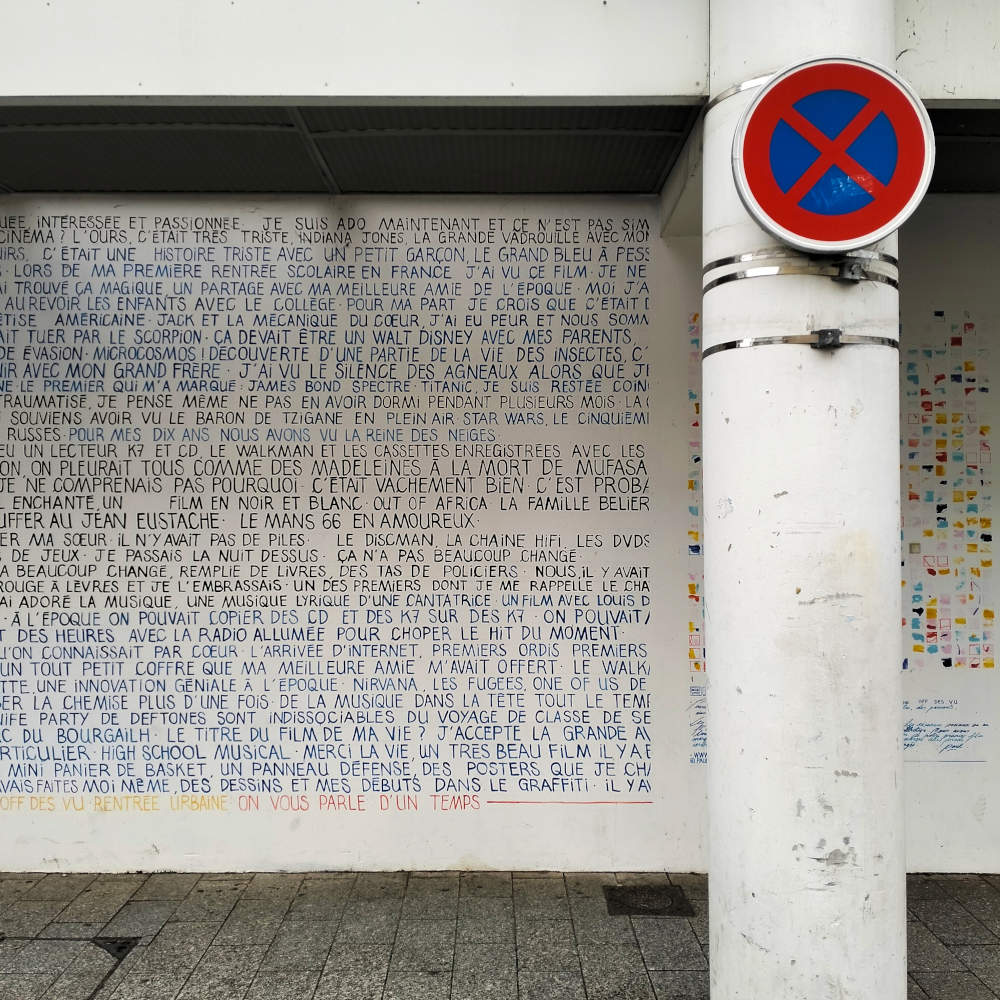 INTÉRESSÉE ET PASSIONNÉE. JE SUIS ADO MAINTENANT ET CE N'EST PAS SIM
CINÉMA ? L'OURS, C'ÉTAIT TRÈS TRISTE, INDIANA JONES, LA GRANDE VADROUILLE AVEC MON
C'ÉTAIT UNE HISTOIRE TRISTE AVEC UN PETIT GARÇON, LE GRAND BLEU À PESS
· LORS DE MA PREMIÈRE RENTRÉE SCOLAIRE EN FRANCE J'AI VU CE FILM · JE NE
AI TROUVÉ ÇA MAGIQUE, UN PARTAGE AVEC MA MEILLEURE AMIE DE L'ÉPOQUE · MOI J'A
AU REVOIR LES ENFANTS AVEC LE COLLÈGE · POUR MA PART JE CROIS QUE C'ÉTAIT
ÊTISE AMÉRICAINE · JACK ET LA MÉCANIQUE DU CŒUR, J'AI EU PEUR ET NOUS SOMM
AIT TUER PAR LE SCORPION · ÇA DEVAIT ÊTRE UN WALT DISNEY AVEC MES PARENTS,
DE ÉVASION · MICROCOSMOS ! DÉCOUVERTE D'UNE PARTIE DE LA VIE DES INSECTES, C'
NIR AVEC MON GRAND FRÈRE · J'AI VU LE SILENCE DES AGNEAUX ALORS QUE J'
NE · LE PREMIER QUI M'A MARQUÉ · JAMES BOND SPECTRE · TITANIC, JE SUIS RESTÉE COIN
TRAUMATISÉE, JE PENSE MÊME NE PAS EN AVOIR DORMI PENDANT PLUSIEURS MOIS · LA
SOUVIENS AVOIR VU LE BARON DE TZIGANE EN PLEIN AIR · STAR WARS, LE CINQUIÈME
RUSSES · POUR MES DIX ANS NOUS AVONS VU LA REINE DES NEIGES ·
EU UN LECTEUR K7 ET CD, LE WALKMAN ET LES CASSETTES ENREGISTRÉES AVEC LES
ON, ON PLEURAIT TOUS COMME DES MADELEINES À LA MORT DE MUFASA
JE NE COMPRENAIS PAS POURQUOI · C'ÉTAIT VACHEMENT BIEN · C'EST PROBA
L ENCHANTÉ, UN FILM EN NOIR ET BLANC · OUT OF AFRICA · LA FAMILLE BELIER
UFFER AU JEAN EUSTACHE · LE MANS 66 EN AMOUREUX ·
ER MA SŒUR · IL N'Y AVAIT PAS DE PILES · LE DISCMAN, LA CHAÎNE HIFI, LES DVDS
S DE JEUX · JE PASSAIS LA NUIT DESSUS · ÇA N'A PAS BEAUCOUP CHANGÉ ·
A BEAUCOUP CHANGÉ, REMPLIE DE LIVRES, DES TAS DE POLICIERS · NOUS, IL Y AVAIT
ROUGE À LÈVRES ET JE L'EMBRASSAIS · UN DES PREMIERS DONT JE ME RAPPELLE LE CHA
AI ADORÉ LA MUSIQUE, UNE MUSIQUE LYRIQUE D'UNE CANTATRICE · UN FILM AVEC LOUIS D
· À L'ÉPOQUE ON POUVAIT COPIER DES CD ET DES K7 SUR DES K7 · ON POUVAIT
T DES HEURES AVEC LA RADIO ALLUMÉE POUR CHOPER LE HIT DU MOMENT ·
U'ON CONNAISSAIT PAR CŒUR · L'ARRIVÉE D'INTERNET, PREMIERS ORDIS PREMIERS
UN TOUT PETIT COFFRE QUE MA MEILLEURE AMIE M'AVAIT OFFERT · LE WALK
TTE, UNE INNOVATION GÉNIALE À L'ÉPOQUE · NIRVANA, LES FUGEES, ONE OF US, DE
BER LA CHEMISE PLUS D'UNE FOIS · DE LA MUSIQUE DANS LA TÊTE TOUT LE TEM
NIFE PARTY DE DEFTONES SONT INDISSOCIABLES DU VOYAGE DE CLASSE DE SE
C DU BOURGAILH · LE TITRE DU FILM DE MA VIE ? J'ACCEPTE LA GRANDE AV
RTICULIER · HIGH SCHOOL MUSICAL · MERCI LA VIE, UN TRÈS BEAU FILM IL Y A
MINI PANIER DE BASKET, UN PANNEAU DÉFENSE, DES POSTERS QUE JE CHA
AVAIS FAITES MOI MÊME, DES DESSINS ET MES DÉBUTS DANS LE GRAFFITI · IL Y AV
OFF DES VU · RENTRÉE URBAINE · ON VOUS PARLE D'UN TEMPS
OFF DES VU